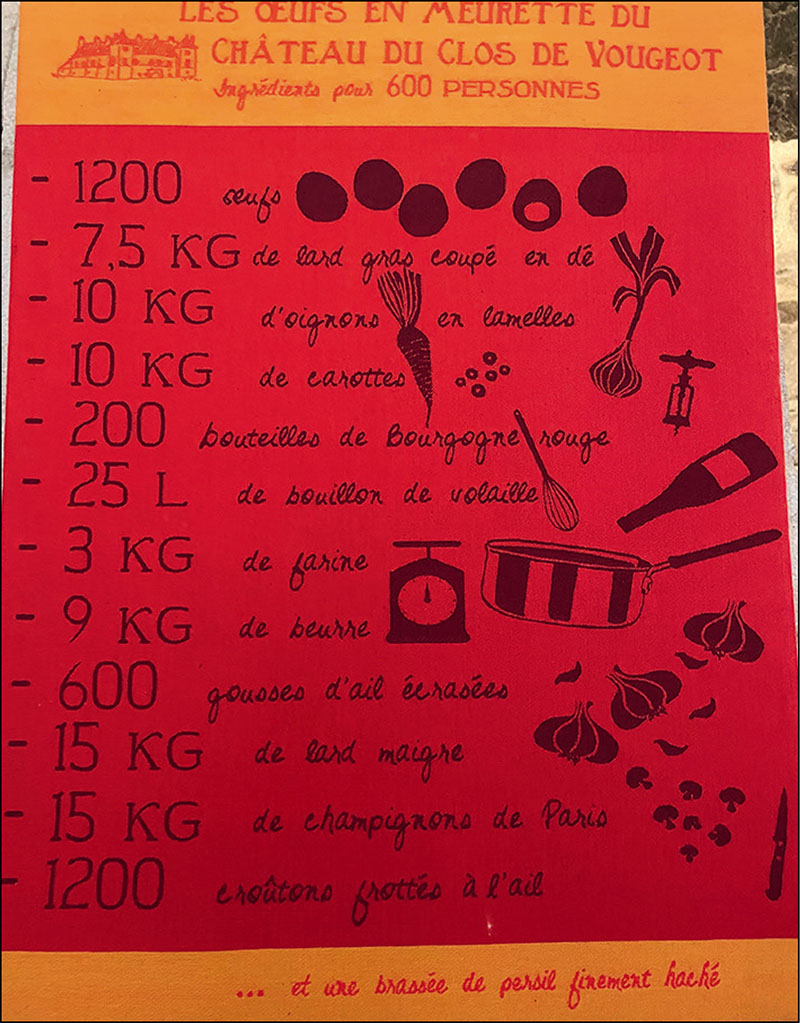 LES ŒUFS EN MEURETTE DU
CHÂTEAU DU CLOS DE VOUGEOT
Ingrédients pour 600 PERSONNES
- 1200 œufs
- 7,5 KG de lard gras coupé en dé
- 10 KG d'oignons en lamelles
- 10 KG de carottes
- 200 bouteilles de Bourgogne rouge
- 25 L de bouillon de volaille
- 3 KG de farine
- 9 KG de beurre
- 600 gousses d'ail écrasées
- 15 KG de lard maigre
- 15 KG de champignons de Paris
- 1200 croûtons frottés à l'ail
... et une brassée de persil finement haché